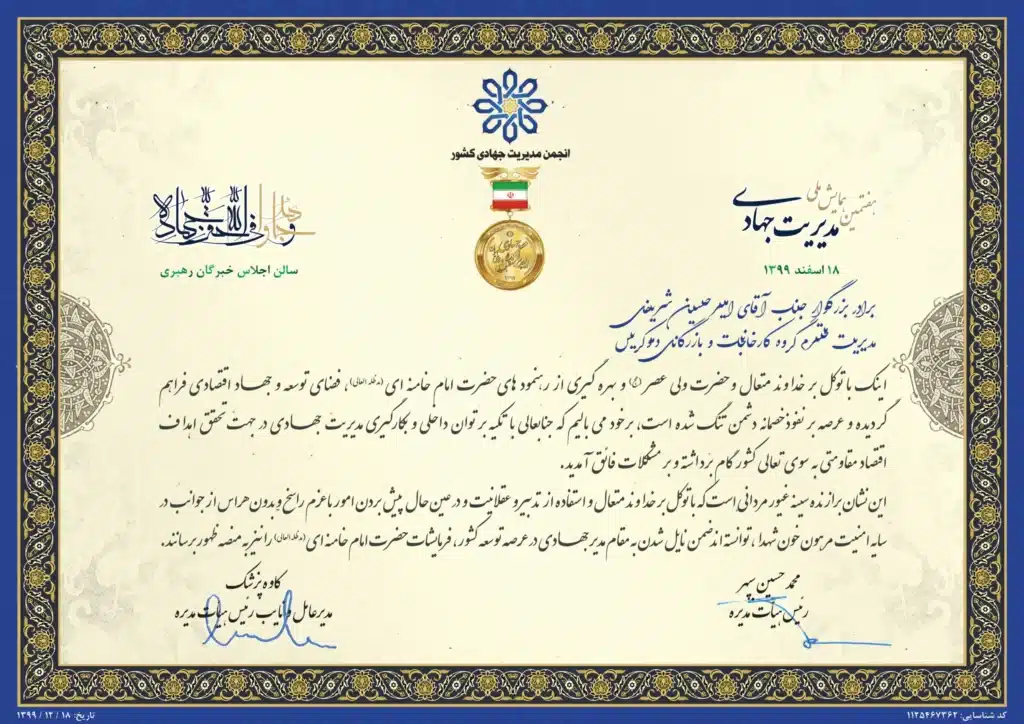 انجمن مدیریت جهادی کشور
هفتمین همایش ملی
مدیریت جهادی
۱۸ اسفند ۱۳۹۹
وجاهدوا فی الله حق جهاده
سالن اجلاس خبرگان رهبری
برادر بزرگوار جناب آقای امیرحسین شریفی
مدیریت محترم گروه کارخانجات و بازرگانی دموکریس
اینک با توکل بر خداوند متعال و حضرت ولی عصر (عج) و بهره گیری از رهنمود های حضرت امام خامنه ای (مدظله العالی)، فضای توسعه و جهاد اقتصادی فراهم
گردیده و عرصه بر نفوذ خصمانه دشمن تنگ شده است، برخود می بالیم که جنابعالی با تکیه بر توان داخلی و بکارگیری مدیریت جهادی در جهت تحقق اهداف
اقتصاد مقاومتی به سوی تعالی کشور گام برداشته و بر مشکلات فائق آمدید.
این نشان برازنده سینه غیور مردانی است که با توکل بر خداوند متعال و استفاده از تدبیر و عقلانیت و در عین حال پیش بردن امور با عزم راسخ و بدون هراس از جوانب در
سایه امنیت مرهون خون شهدا، توانسته اند ضمن نایل شدن به مقام مدیر جهادی در عرصه توسعه کشور، فرمایشات حضرت امام خامنه ای (مدظله العالی) را نیز به منصه ظهور برسانند.
محمد حسین سپهر
رئیس هیأت مدیره
کاوه پزشک
مدیرعامل و نایب رئیس هیأت مدیره
کد شناسایی: ۱۱۲۵۴۶۷۳۶۲
تاریخ: ۱۸ / ۱۲ / ۱۳۹۹